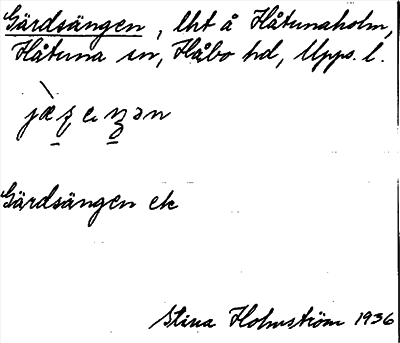 Gärdsängen, lht å Håtunaholm,
Håtuna sn, Håbo hd, Upps. l.
Gärdsängen ek
Stina Holmström 1936